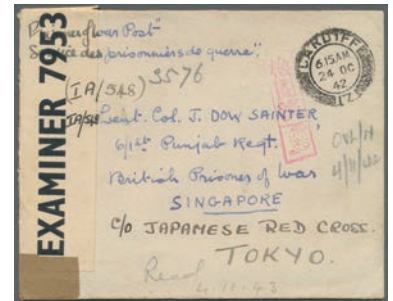 Prisoner of War Post"
Service des prisonniers de guerre".
CARDIFF
6 15 AM
24 OC
42
EXAMINER 7953
(IA/548) 3576
IA/548
Lieut. Col. J. DOW SAINTER,
6/1st Punjab Regt.
British Prisoner of War
SINGAPORE
c/o JAPANESE RED CROSS.
TOKYO.
Recd
4.11.43